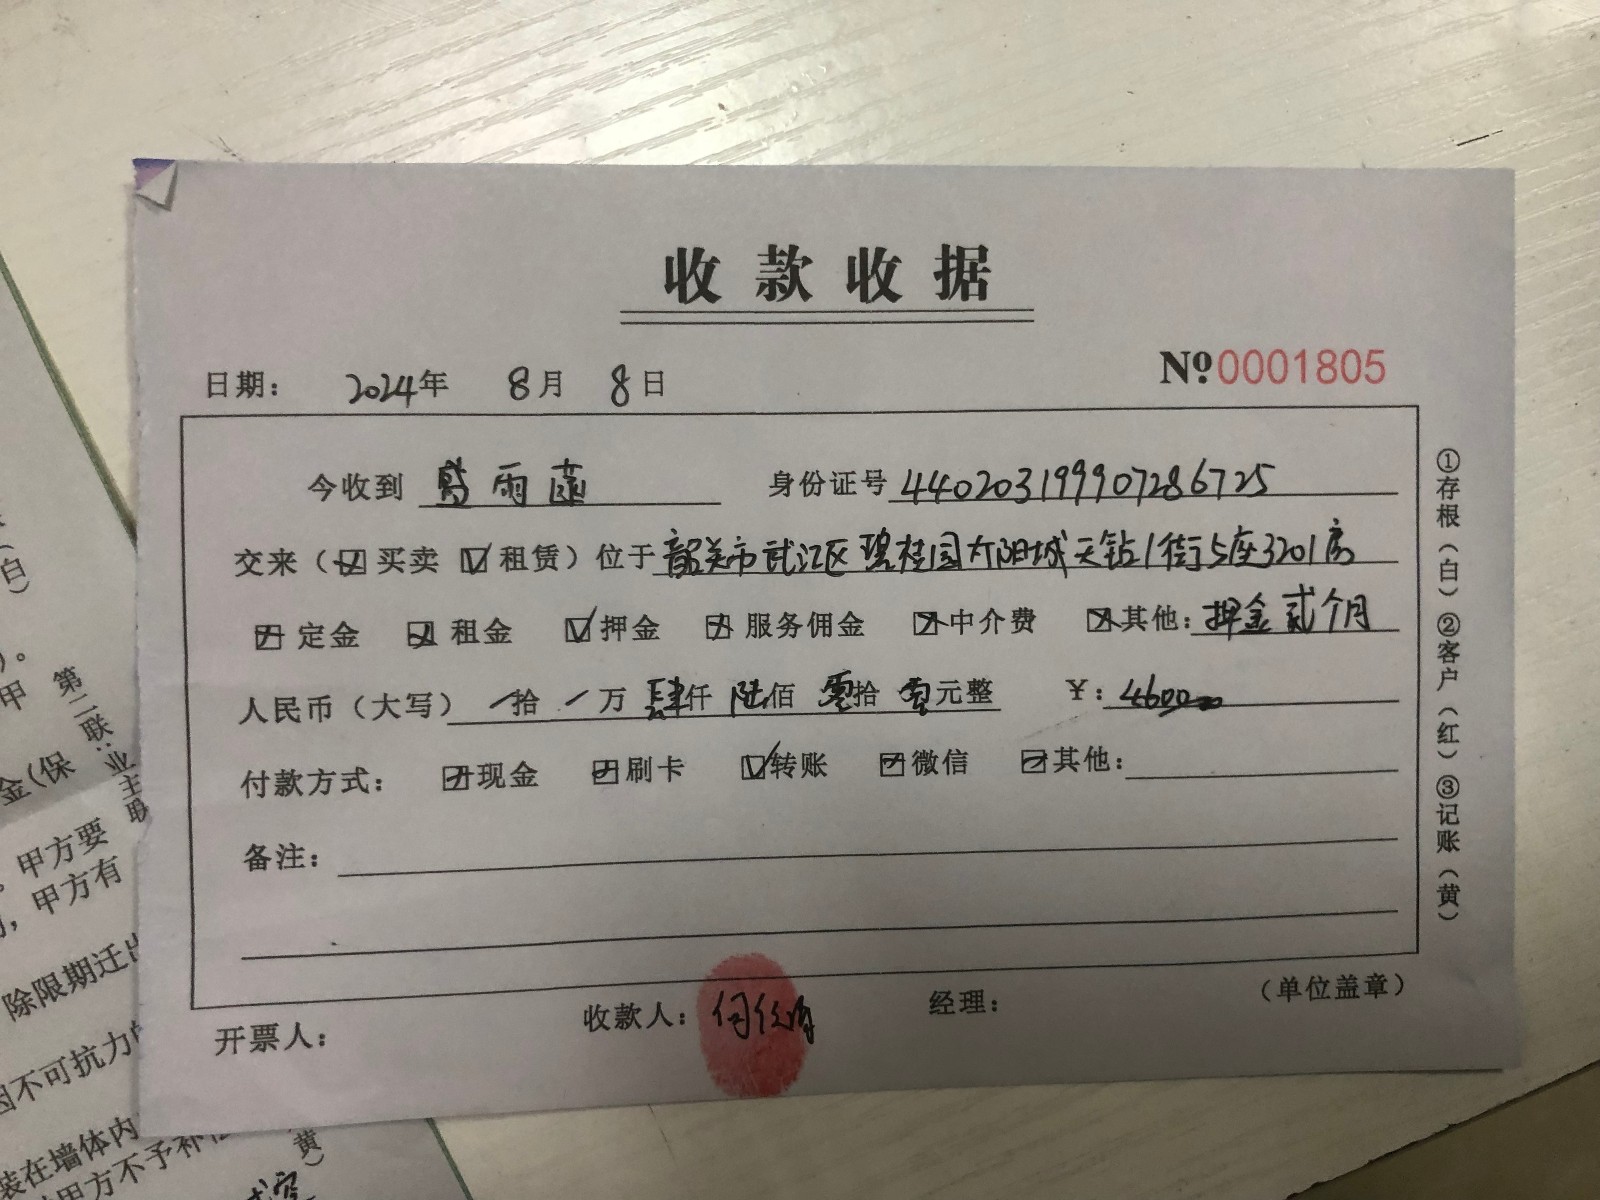 收款收据
日期： 2024年 8月 8日
№0001805
今收到 葛雨蕙 身份证号 440203199907286725
交来（☑买卖 ☑租赁）位于韶关市武江区碧桂园太阳城天钻1街5座3201房
定金 租金 押金 服务佣金 中介费 其他：押金贰个月
人民币（大写） /拾 /万 肆仟 陆佰 零拾 零元整 ¥：4600
付款方式： 现金 刷卡 转账 微信 其他：
备注：
开票人： 收款人： 经理： （单位盖章）
①存根（白）②客户（红）③记账（黄）
第二联：业主联
白）
）。
甲
金（保
。甲方要
，甲方有
除限期迁出
因不可抗力
装在墙体内
甲方不予补
黄）